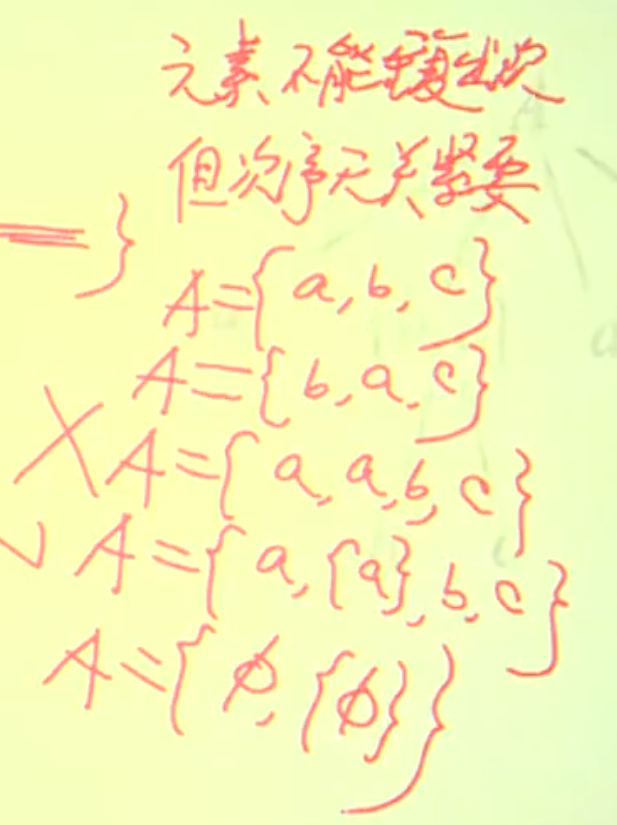 元素不能重复出现
但次序无关紧要
}
A={a,b,c}
A={b,a,c}
X A={a,a,b,c}
√ A={a,{a},b,c}
A={ϕ,{ϕ}}